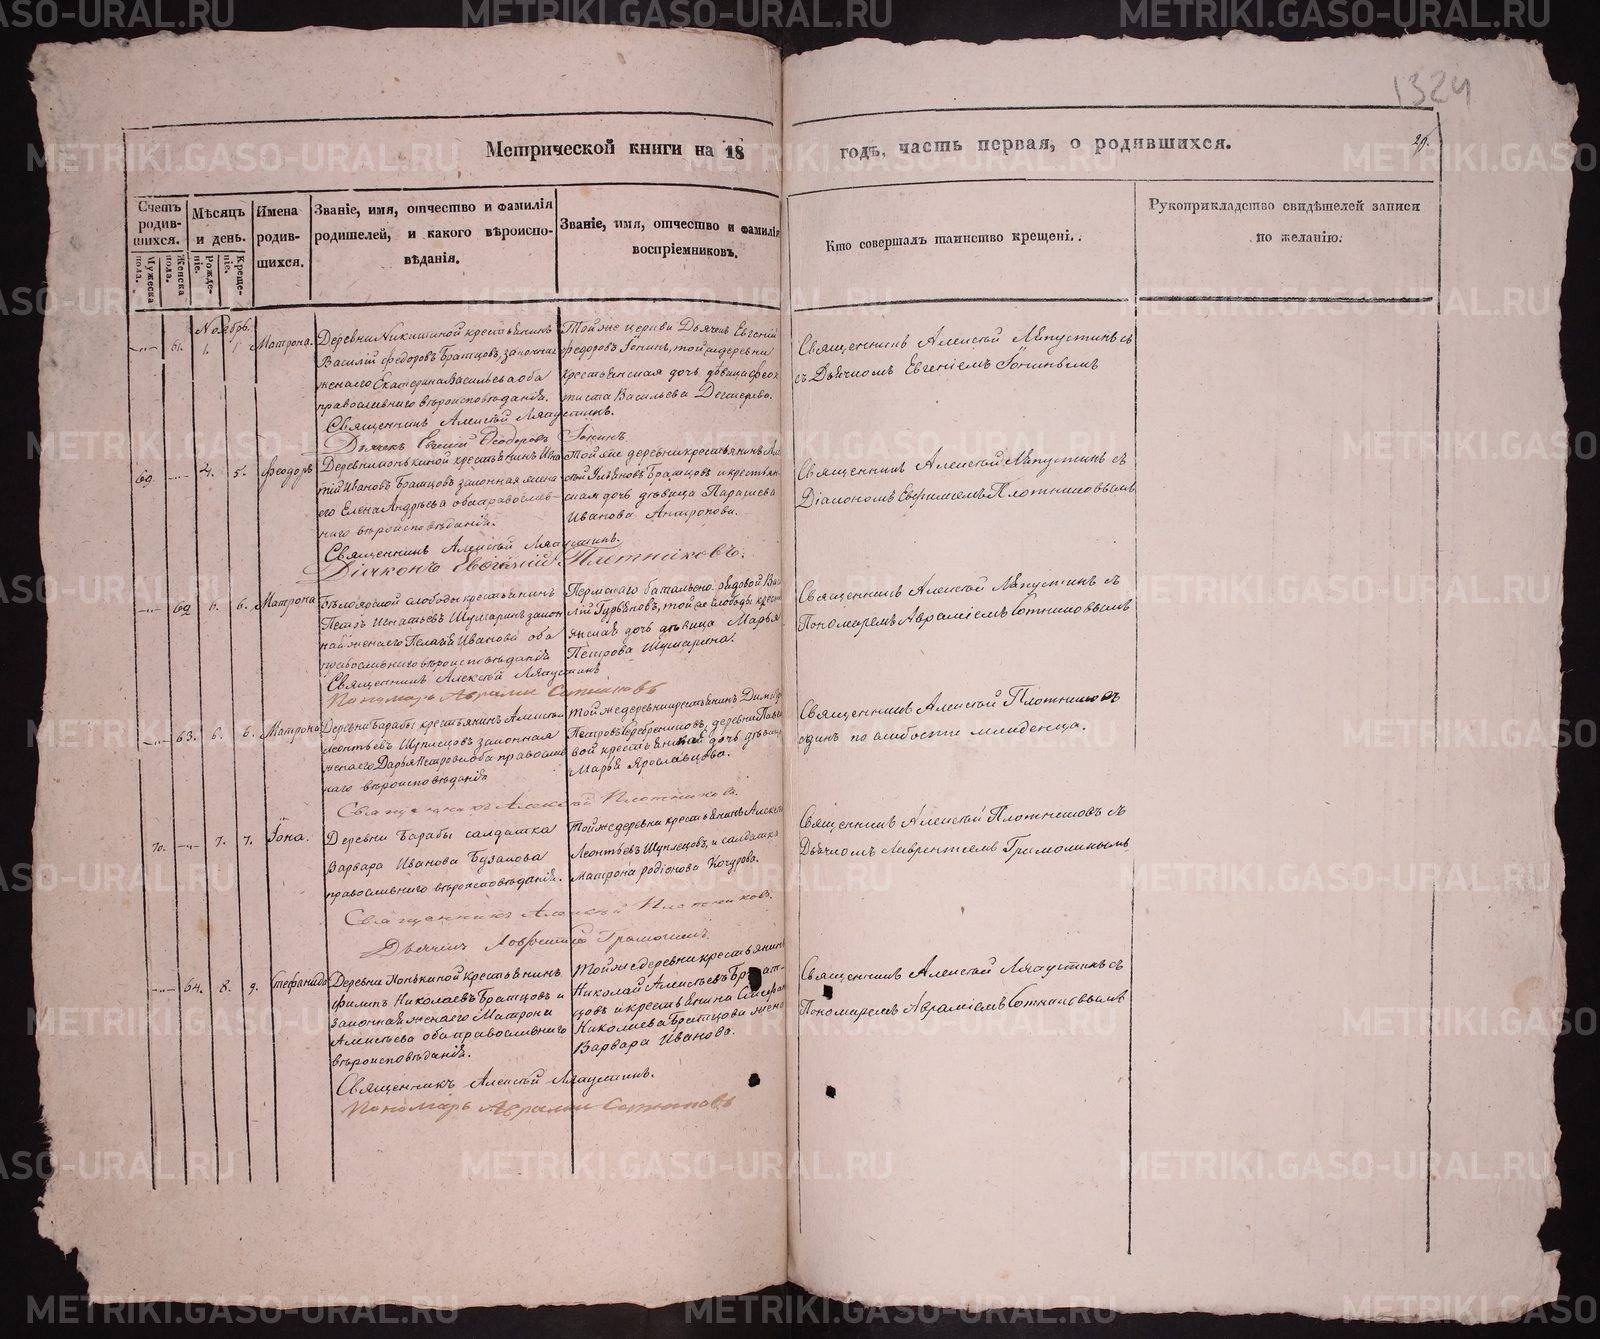 1324
Метрической книги на 18 годъ, часть первая, о родившихся.
29.
Счетъ родив-шихся.
Мужеска пола.
Женска пола.
Мѣсяцъ и день.
Рожде-ніе.
Креще-ніе.
Имена родив-шихся.
Званіе, имя, отчество и фамилія
родителей, и какого вѣроиспо-
вѣданія.
Званіе, имя, отчество и фамилія
воспріемниковъ.
Кто совершалъ таинство крещені..
Рукоприкладство свидѣтелей записи
по желанію.
Ноябрь.
61. 1. 1. Матрона.
Деревни Никитиной крестьянинъ
Василій Федоровъ Братцовъ, законная
жена его Екатерина Васильева оба
православнаго вѣроисповѣданія.
Тойже церкви Дьячекъ Евгеній
Федоровъ Іонинъ, той же деревни
крестьянская дочь дѣвица Феок
тиста Васильева
Священникъ Алексѣй Ляпустинъ съ
Дьячкомъ Евгеніемъ Іонинымъ
Священникъ Алексѣй Ляпустинъ.
Дьячекъ Евгеній Феодоровъ Іонинъ.
69. 4. 5. Феодоръ
крестьянинъ Игна
тій Ивановъ Братцовъ законная жена
его Елена Андрѣева оба православ-
наго вѣроисповѣданія.
Той же деревни крестьянинъ
Братцовъ и крестьян
ская дочь дѣвица Параскева
Иванова Антропова.
Священникъ Алексѣй Ляпустинъ съ
Діакономъ Евгеніемъ Плотниковымъ
Священникъ Алексѣй Ляпустинъ.
Діаконъ Евгеній Плотниковъ.
62 6. 6. Матрона
Бѣлоярской слободы крестьянинъ
Петръ Игнатьевъ Шумаринъ закон
ная жена его Пелагія Иванова оба
православнаго вѣроисповѣданія
Пермскаго баталіона рядовой Васи
лій Гурьяновъ, той же слободы кресть
янская дочь дѣвица Марья
Петрова Шумарина.
Священникъ Алексѣй Ляпустинъ съ
Пономаремъ Авраміемъ Сотниковымъ
Священникъ Алексѣй Ляпустинъ
Пономарь Аврамій Сотниковъ
63. 6. 6. Матрона
Деревни Барабы крестьянинъ Алексѣй
Леонтьевъ Шуплецовъ законная
жена его Дарья Петрова оба православ
наго вѣроисповѣданія
Той же деревни крестьянинъ
Петровъ Серебрениковъ, деревни
вой крестьянская дочь дѣвица
Марья Ярославцова.
Священникъ Алексѣй Плотниковъ
одинъ по слабости младенца.
Священникъ Алексѣй Плотниковъ.
70. 7. 7. Іона.
Деревни Барабы салдатка
Варвара Иванова Бузанова
православнаго вѣроисповѣданія.
Той же деревни крестьянинъ Алексѣй
Леонтьевъ Шуплецовъ, и салдатка
Матрона Родіонова Кочурова.
Священникъ Алексѣй Плотниковъ съ
Дьячкомъ Лаврентіемъ Грамолинымъ
Священникъ Алексѣй Плотниковъ.
64. 8. 9. Стефанида
Деревни Конькиной крестьянинъ
Филипъ Николаевъ Братцовъ и
законная жена его Матрона
Алексѣева оба православнаго
вѣроисповѣданія.
Той же деревни крестьянинъ
Николай Алексѣевъ Братцовъ и крестьянина
Николаева Братцова жена
Варвара Иванова.
Священникъ Алексѣй Ляпустинъ съ
Пономаремъ Авраміемъ Сотниковымъ
Священникъ Алексѣй Ляпустинъ.
Пономарь Аврамій Сотниковъ
METRIKI.GASO-URAL.RU